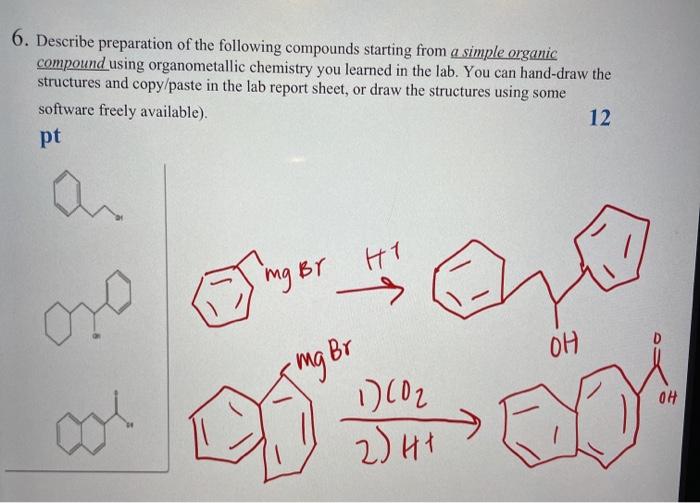 6. Describe preparation of the following compounds starting from a simple organic
compound using organometallic chemistry you learned in the lab. You can hand-draw the
structures and copy/paste in the lab report sheet, or draw the structures using some
software freely available).
12
pt
mg Br
H+
OH
mg Br
1) CO2
2) H+
O
OH